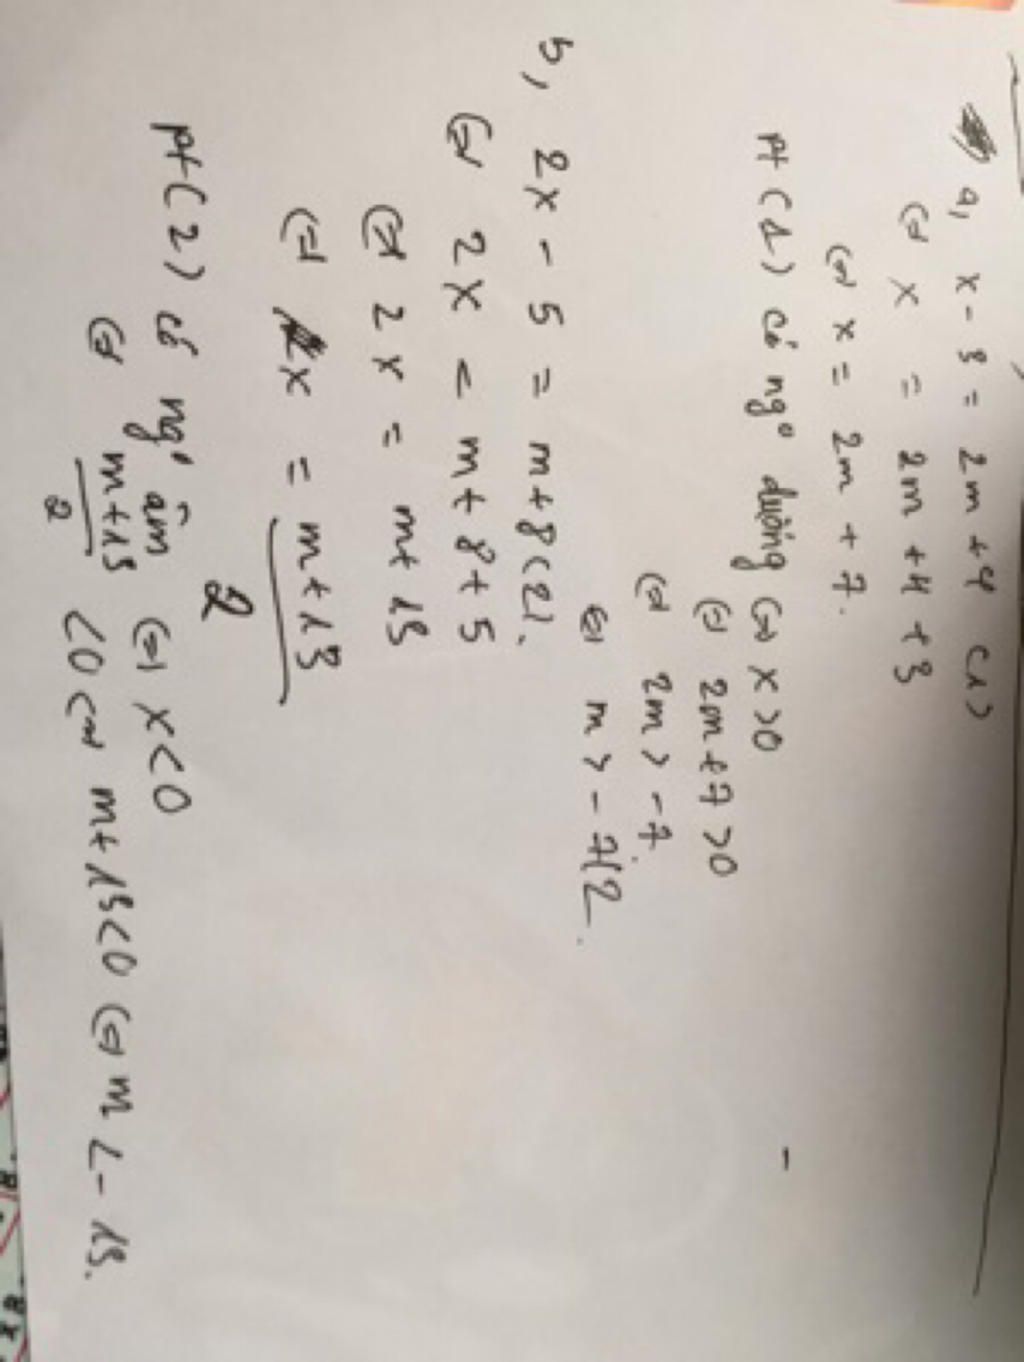 a, x - 3 = 2m + 4 (1)
⇔ x = 2m + 4 + 3
⇔ x = 2m + 7.
pt (1) có ngº dương ⇔ x > 0
⇔ 2m + 7 > 0
⇔ 2m > -7
⇔ m > -7/2.
b, 2x - 5 = m + 8 (2).
⇔ 2x = m + 8 + 5
⇔ 2x = m + 13
⇔ x = m + 13 / 2
pt (2) có ngº âm ⇔ x < 0
⇔ m + 13 / 2 < 0 ⇔ m + 13 < 0 ⇔ m < - 13.